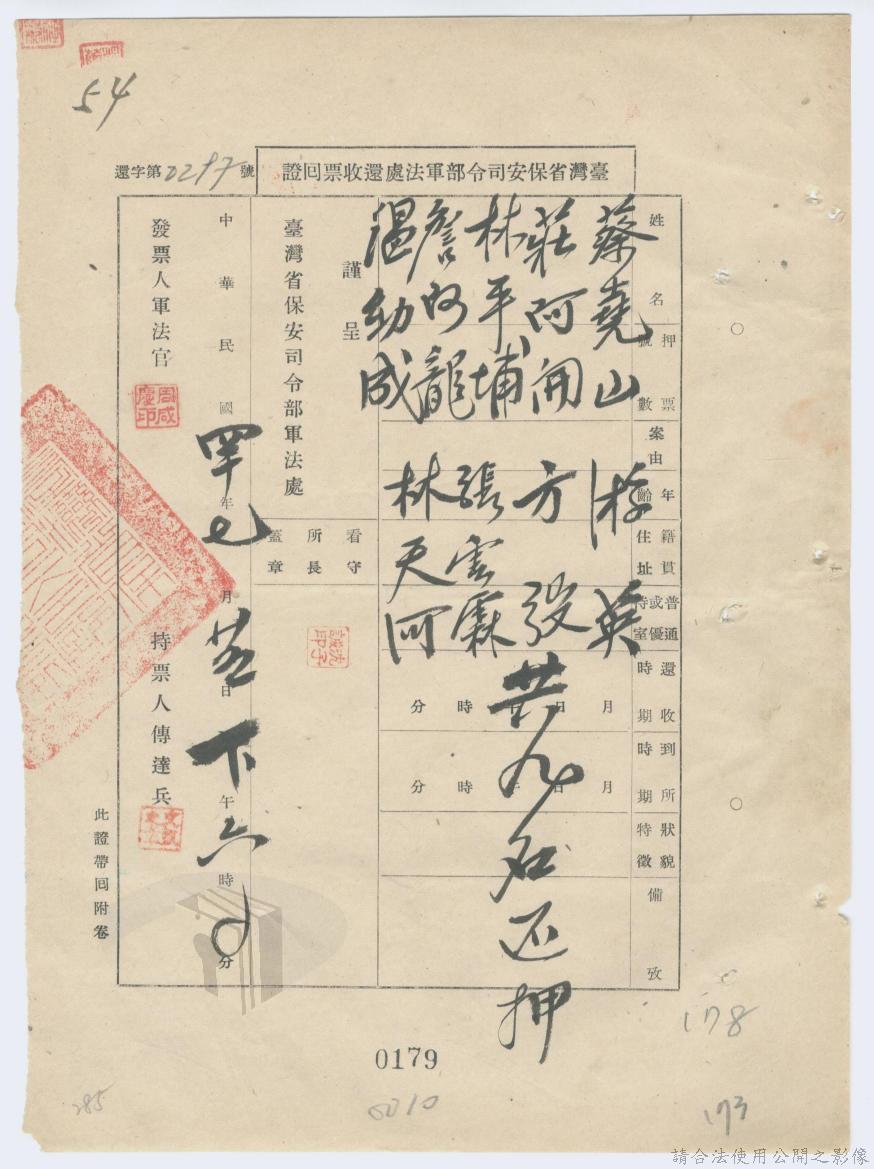 54
臺灣省保安司令部軍法處還收票回證
還字第0297號
姓名
押票號數
案由
年齡
籍貫住址
普通或特優室
還收時期
到所時期
特徵狀貌
備攷
蔡堯山 游英
莊阿開 方發
林平埔 張雲霖
詹阿龍 林天河
溫幼成
共九名还押
月日午時分
月日午時分
謹呈
臺灣省保安司令部軍法處
看守所長蓋章
中華民國四年七月廿五日下午六時分
發票人軍法官
周咸慶印
持票人傳達兵
此證帶回附卷
0179
178
173
285
0010
請合法使用公開之影像